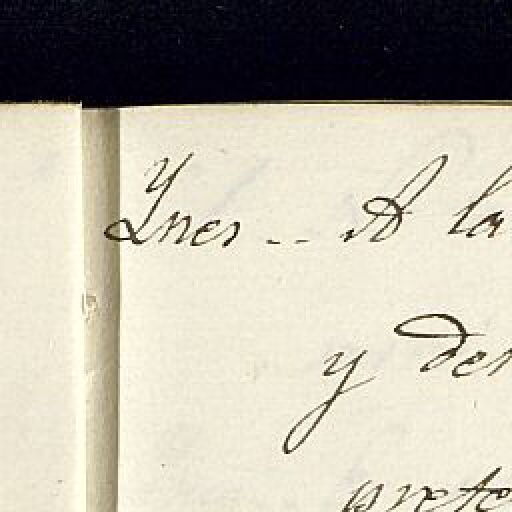 Ynes -- A la
y des
prete